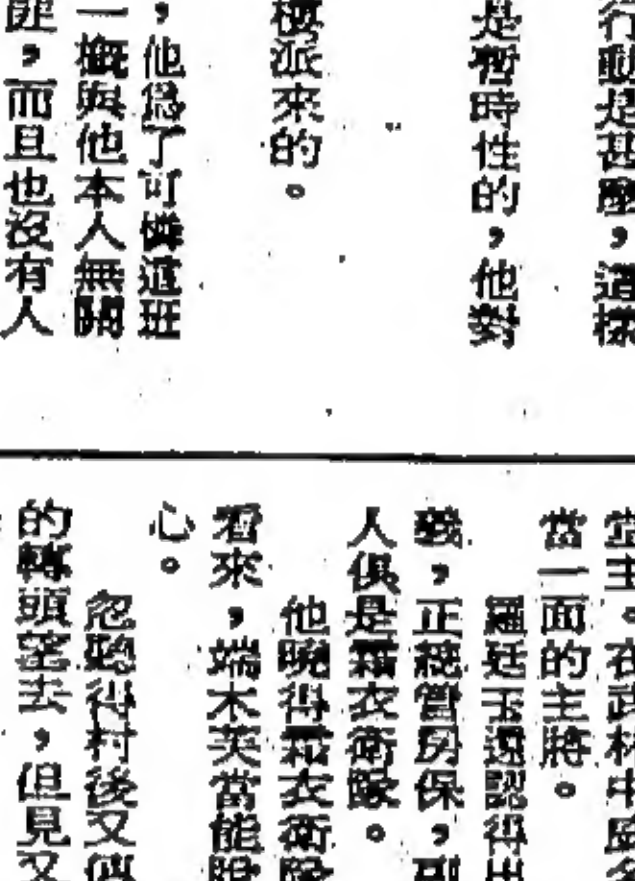 行動是甚麼，這樣
是暫時性的，他對
樓派來的。
，他爲了可憐這班
一概與他本人無關
匪，而且也沒有人
堂主。在武林中
當一面的主將。
羅廷玉還認得出
義，正統管房保，副
人俱是霜衣衛隊。
他曉得霜衣衛隊
看來，端木芙當能
心。
忽聽得村後又傳
的轉頭望去，但見又